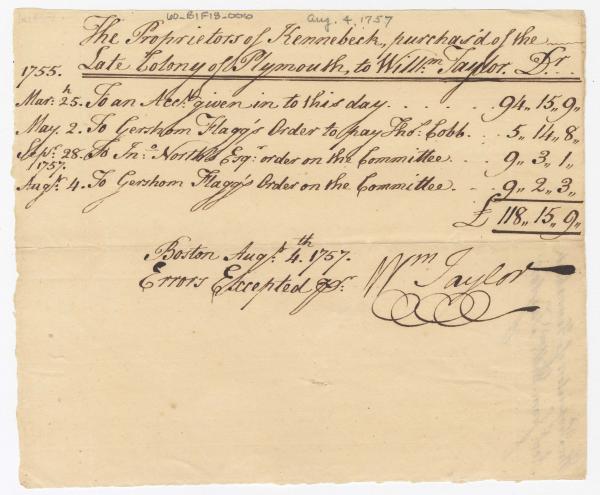 60-B1F18-006 Aug. 4, 1757
The Proprietors of Kennebeck, purchas'd of the
Late Colony of Plymouth, to Will.m Taylor. Dr.
1755.
Mar.h 25. To an Acc.t given in to this day . . . . . 94,, 15,, 9,,
May. 2. To Gershom Flagg's Order to pay Tho.s Cobb. . . 5,, 14,, 8,,
Sep.r 28. To Jn.o North's Esq.r order on the Committee . . . 9,, 3,, 1,,
1757.
Aug.t 4. To Gershom Flagg's Order on the Committee. . . 9,, 2,, 3,,
£ 118,, 15,, 9,,
Boston Aug.t 4.th 1757.
Errors Excepted pr.
Wm Taylor